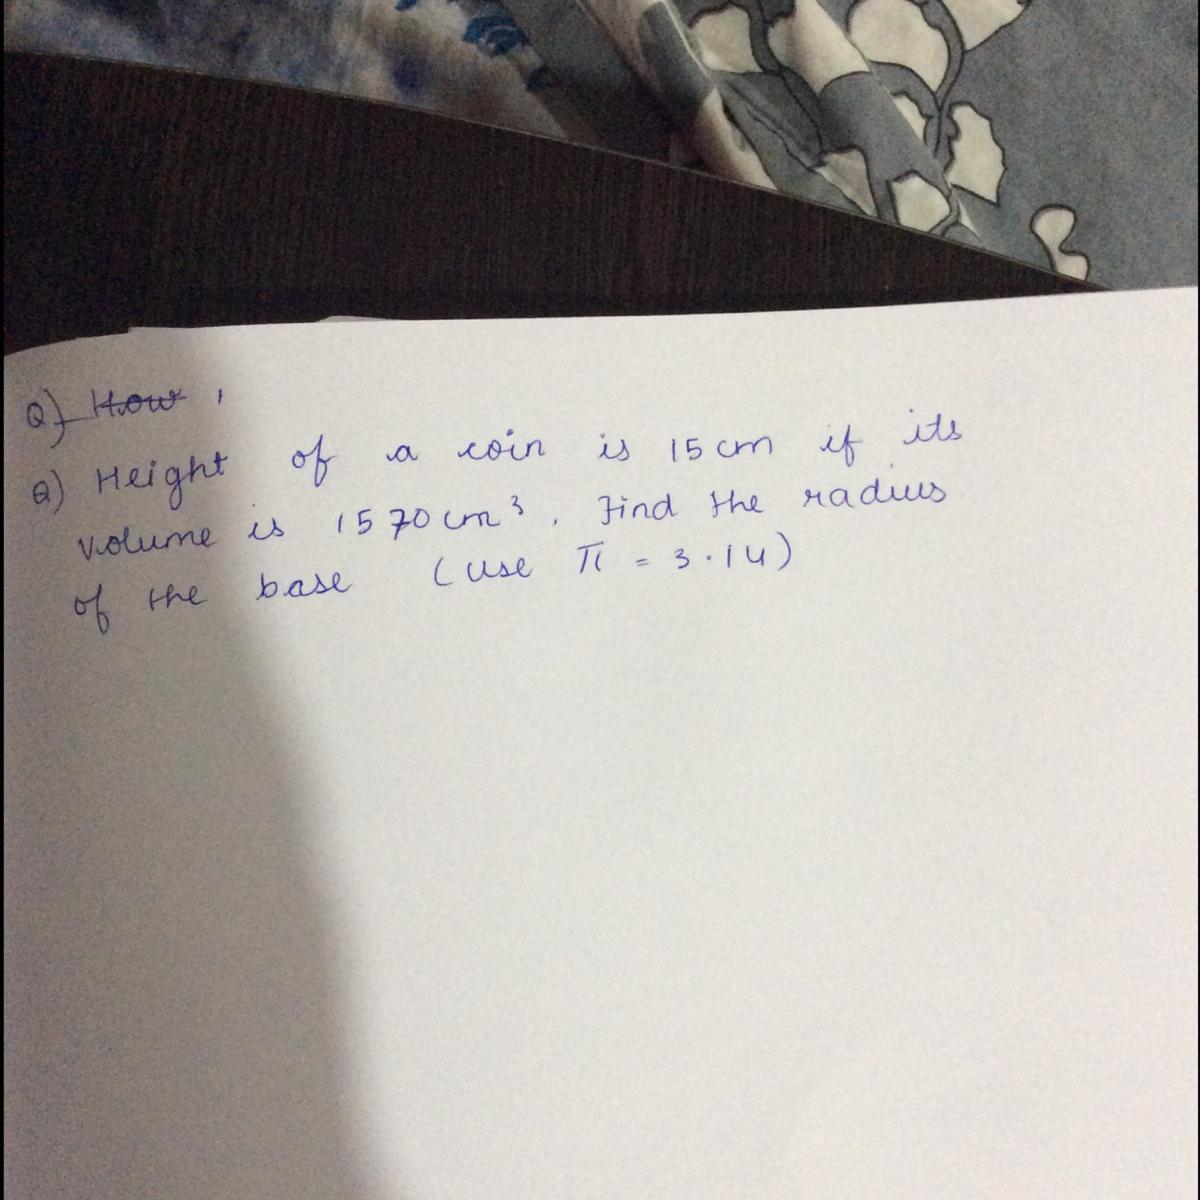 Q) How
Q) Height of a coin is 15 cm if its
volume is 1570 cm³. Find the radius
of the base (use π = 3.14)